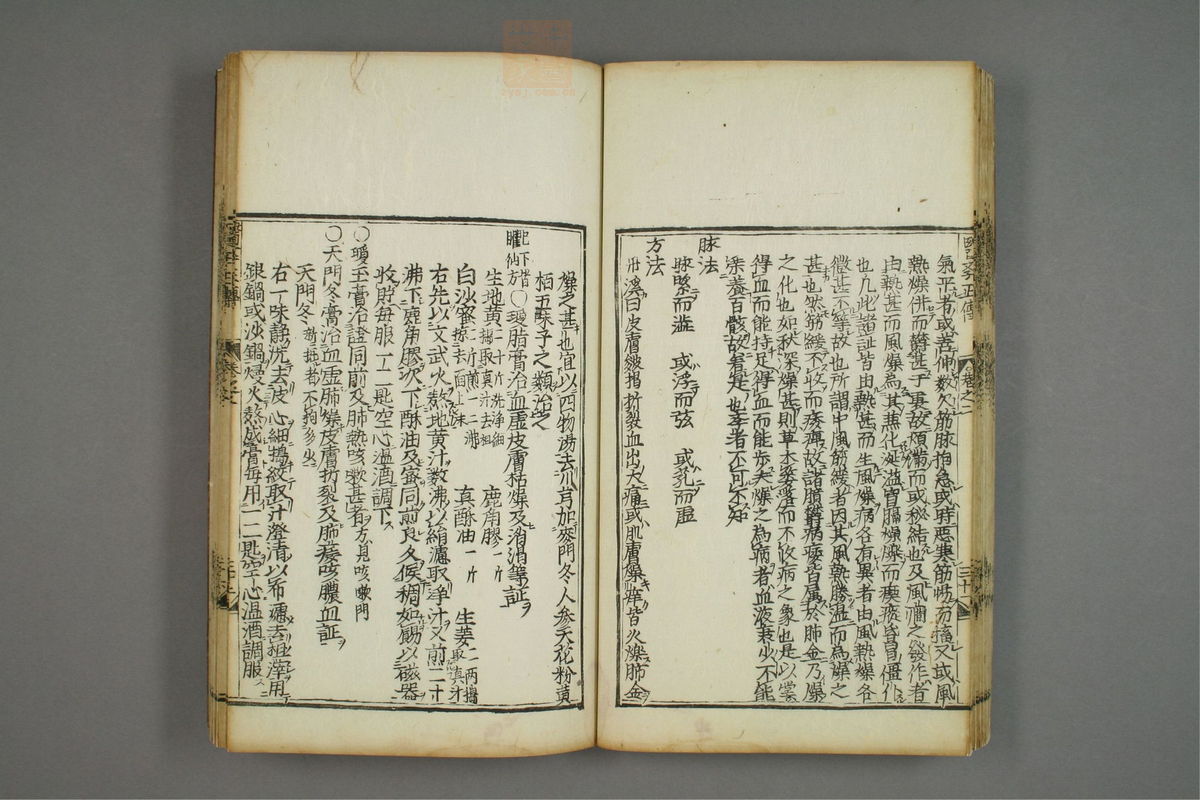 氣平者或善伸數欠筋脉拘急或時惡寒筋惕而搐又或風
熱燥佛而欝甚于裏故煩滿而或秘結也及風癇之發作者
由熱甚而風燥為其兼化涎溢胷膈燥爍而瘈瘲昏冒僵仆
也凢此諸証皆由熱甚而生風燥病各有異者由風熱燥各
微甚不等故也所謂中風筋緩者因其風熱勝濕而為燥之
甚也然筋緩不收而痿痹故諸膹欝病痿皆属於肺金乃燥
之化也如秋深燥甚則草木萎落而不收病之象也是以掌
得血而能持足得血而能歩夫燥之為病者血液衰少不能
榮養百骸故若是也学者不可不知
脉法
脉緊而澁 或浮而弦 或芤而虛
方法
丹溪曰皮膚皴揭折裂血出大痛或肌膚燥痒皆火爍肺金
燥之甚也宜以四物湯去川芎加麥門冬人参天花粉黄
栢五味子之類治之
此下皆
臞仙方
〇瓊脂膏治血虛皮膚枯燥及消渴等証
生地黄二十斤洗淨細搗取真汁去粗 鹿角膠一斤
白沙蜜二斤煎一二沸掠去面上沫 真酥油一斤 生姜二兩搗取真汁
右先以文武火熬地黄汁数沸以絹濾取淨汁又煎二十
沸下鹿角膠次下酥油及蜜同煎良久候稠如餳以磁器
收貯毎服一二匙空心温酒調下
〇瓊玉膏治證同前及肺熱咳嗽甚者方見咳嗽門
〇天門冬膏治血虛肺燥皮膚折裂及肺痿咳膿血証
天門冬新掘者不拘多少
右一味静洗去皮心細搗絞取汁澄清以布濾去粗滓用
銀鍋或沙鍋慢火熬成膏毎用一二匙空心温酒調服